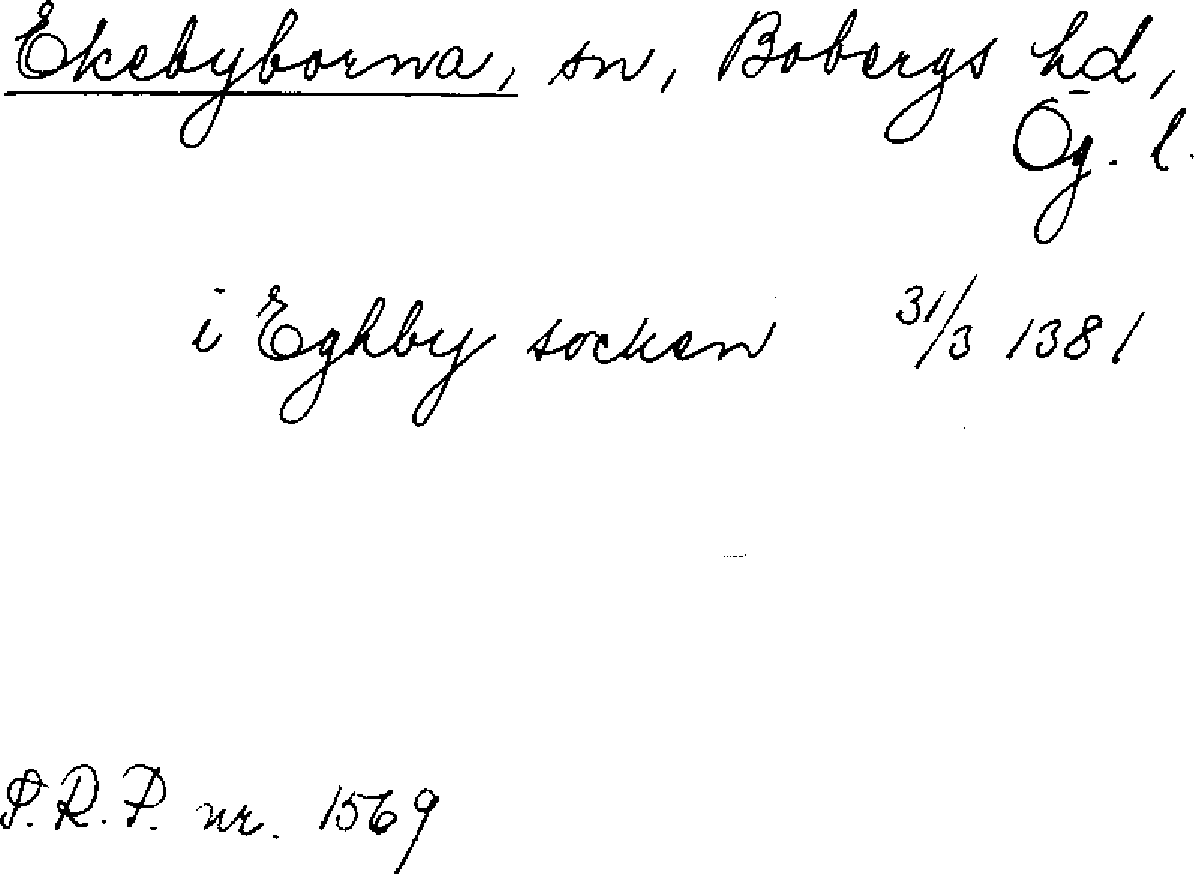 Ekebyborna, sn, Bobergs hd,
Ög. l.
i Eghby socken 31/3 1381
S.R.P. nr. 1569